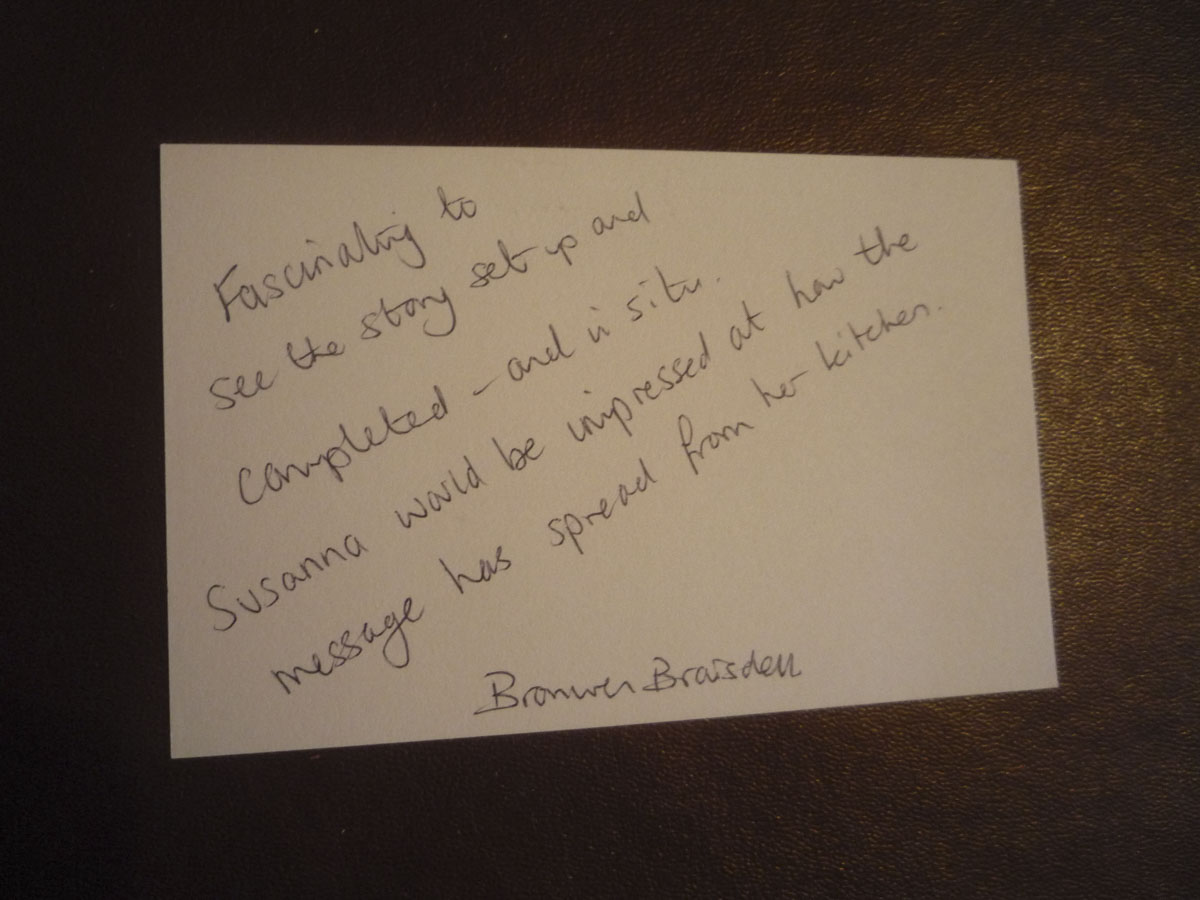 Fascinating to
see the story set up and
completed – and in situ.
Susanna would be impressed at how the
message has spread from her kitchen.
Bronwen Braisdell